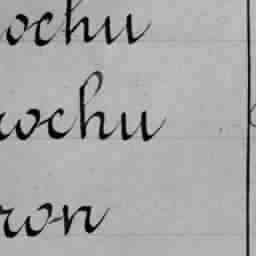 ochu
rochu
ron